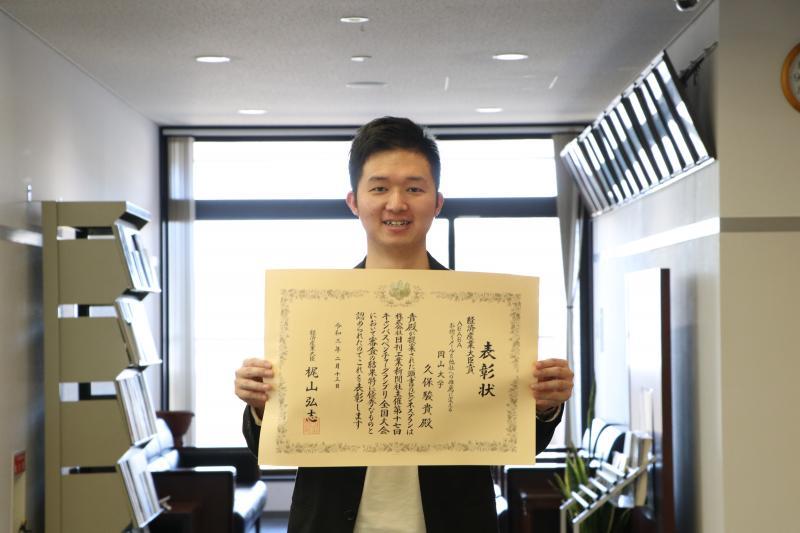 表彰状
経済産業大臣賞
岡山大学
久保駿貴殿
貴殿が提案された頭書のビジネスプランは
株式会社日刊工業新聞社主催第十七回
キャンパスベンチャーグランプリ全国大会
において審査の結果特に優秀なものと
認められたのでこれを表彰します
令和三年二月十三日
経済産業大臣
梶山弘志